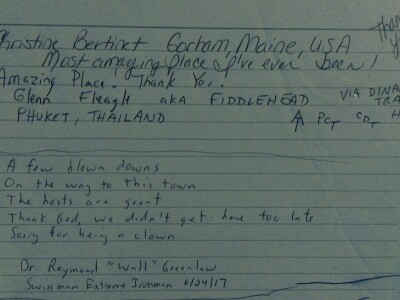 Christine Bertinet Gorham, Maine, USA
Most amazing place I've ever been!
Amazing Place! Thank You!
Glenn Fleagle aka FIDDLEHEAD VIA
PHUKET, THAILAND PCT CDT
A few blown downs
On the way to this town
The hosts are great
Thank God, we didn't get here too late
Sorry for being a clown.
Dr. Raymond "Wall" Greenlaw
Swissman Extreme Ironman 6/24/17